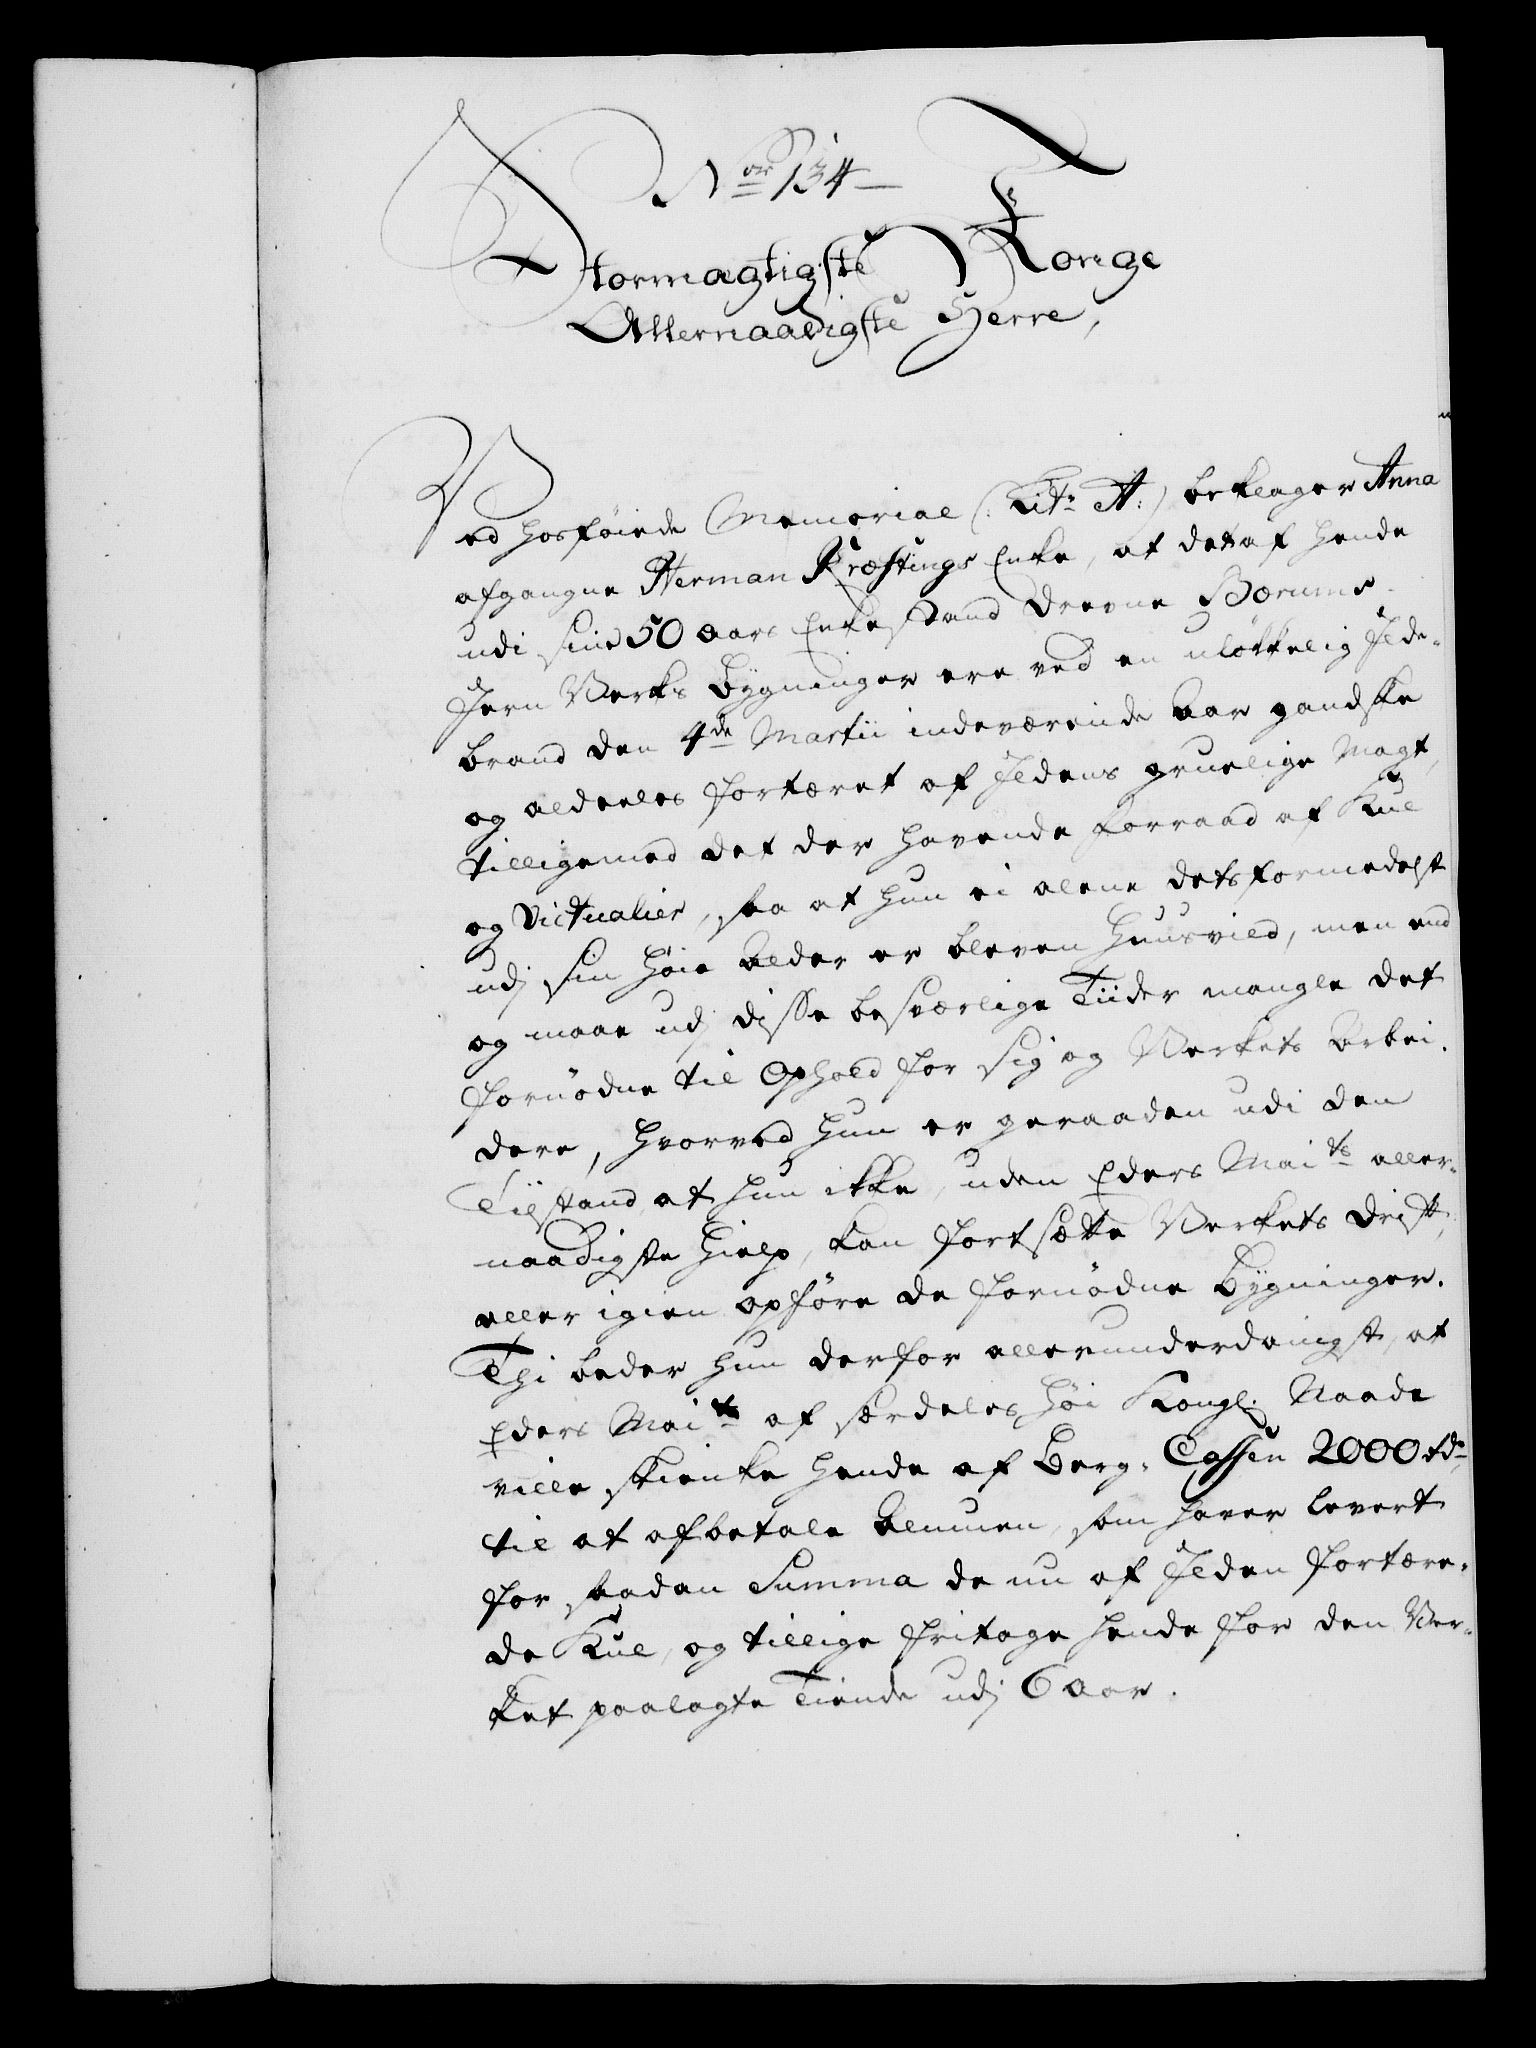 Nor 134
Stormægtigste Konge
Allernaadigste Herre,
Ved hosføiede Memorial (: Litr A :) beklager Anna
afgangne Herman Kræftings Enke, at det af hende
udi sine 50 aars Enkestand drevne Bærums-
Jern Verks Bygninger ere ved en uløkkelig Ilde-
brand den 4de Martii indeværende Aar gandske
og aldeeles fortæret af Ildens gruelige Magt,
tilligemed det der havende Forraad af Kul
og Victualier, saa at hun ei alene detsformedelst
udj sin høie Alder er bleven huusvild, men end
og maae udj disse besværlige Tiider mangle det
fornødne til Ophold for sig og Verkets Arbei-
dere, hvorved hun er geraaden udi den
Tilstand, at hun ikke, uden Eders Maits aller-
naadigste Hielp, kan fortsætte Verkets Drift,
eller igien opføre de fornødne Bygninger.
Thi beder hun derfor allerunderdanigst, at
Eders Maits af særdeles høi Kongl. Naade
ville skienke hende af Berg-Cassen 2000 rdr
til at afbetale Almuen, som haver levert
for saadan Summa de nu af Ilden fortære-
de Kul, og tillige fritage hende for den Ver-
ket paalagte Tiende udj 6 Aar.